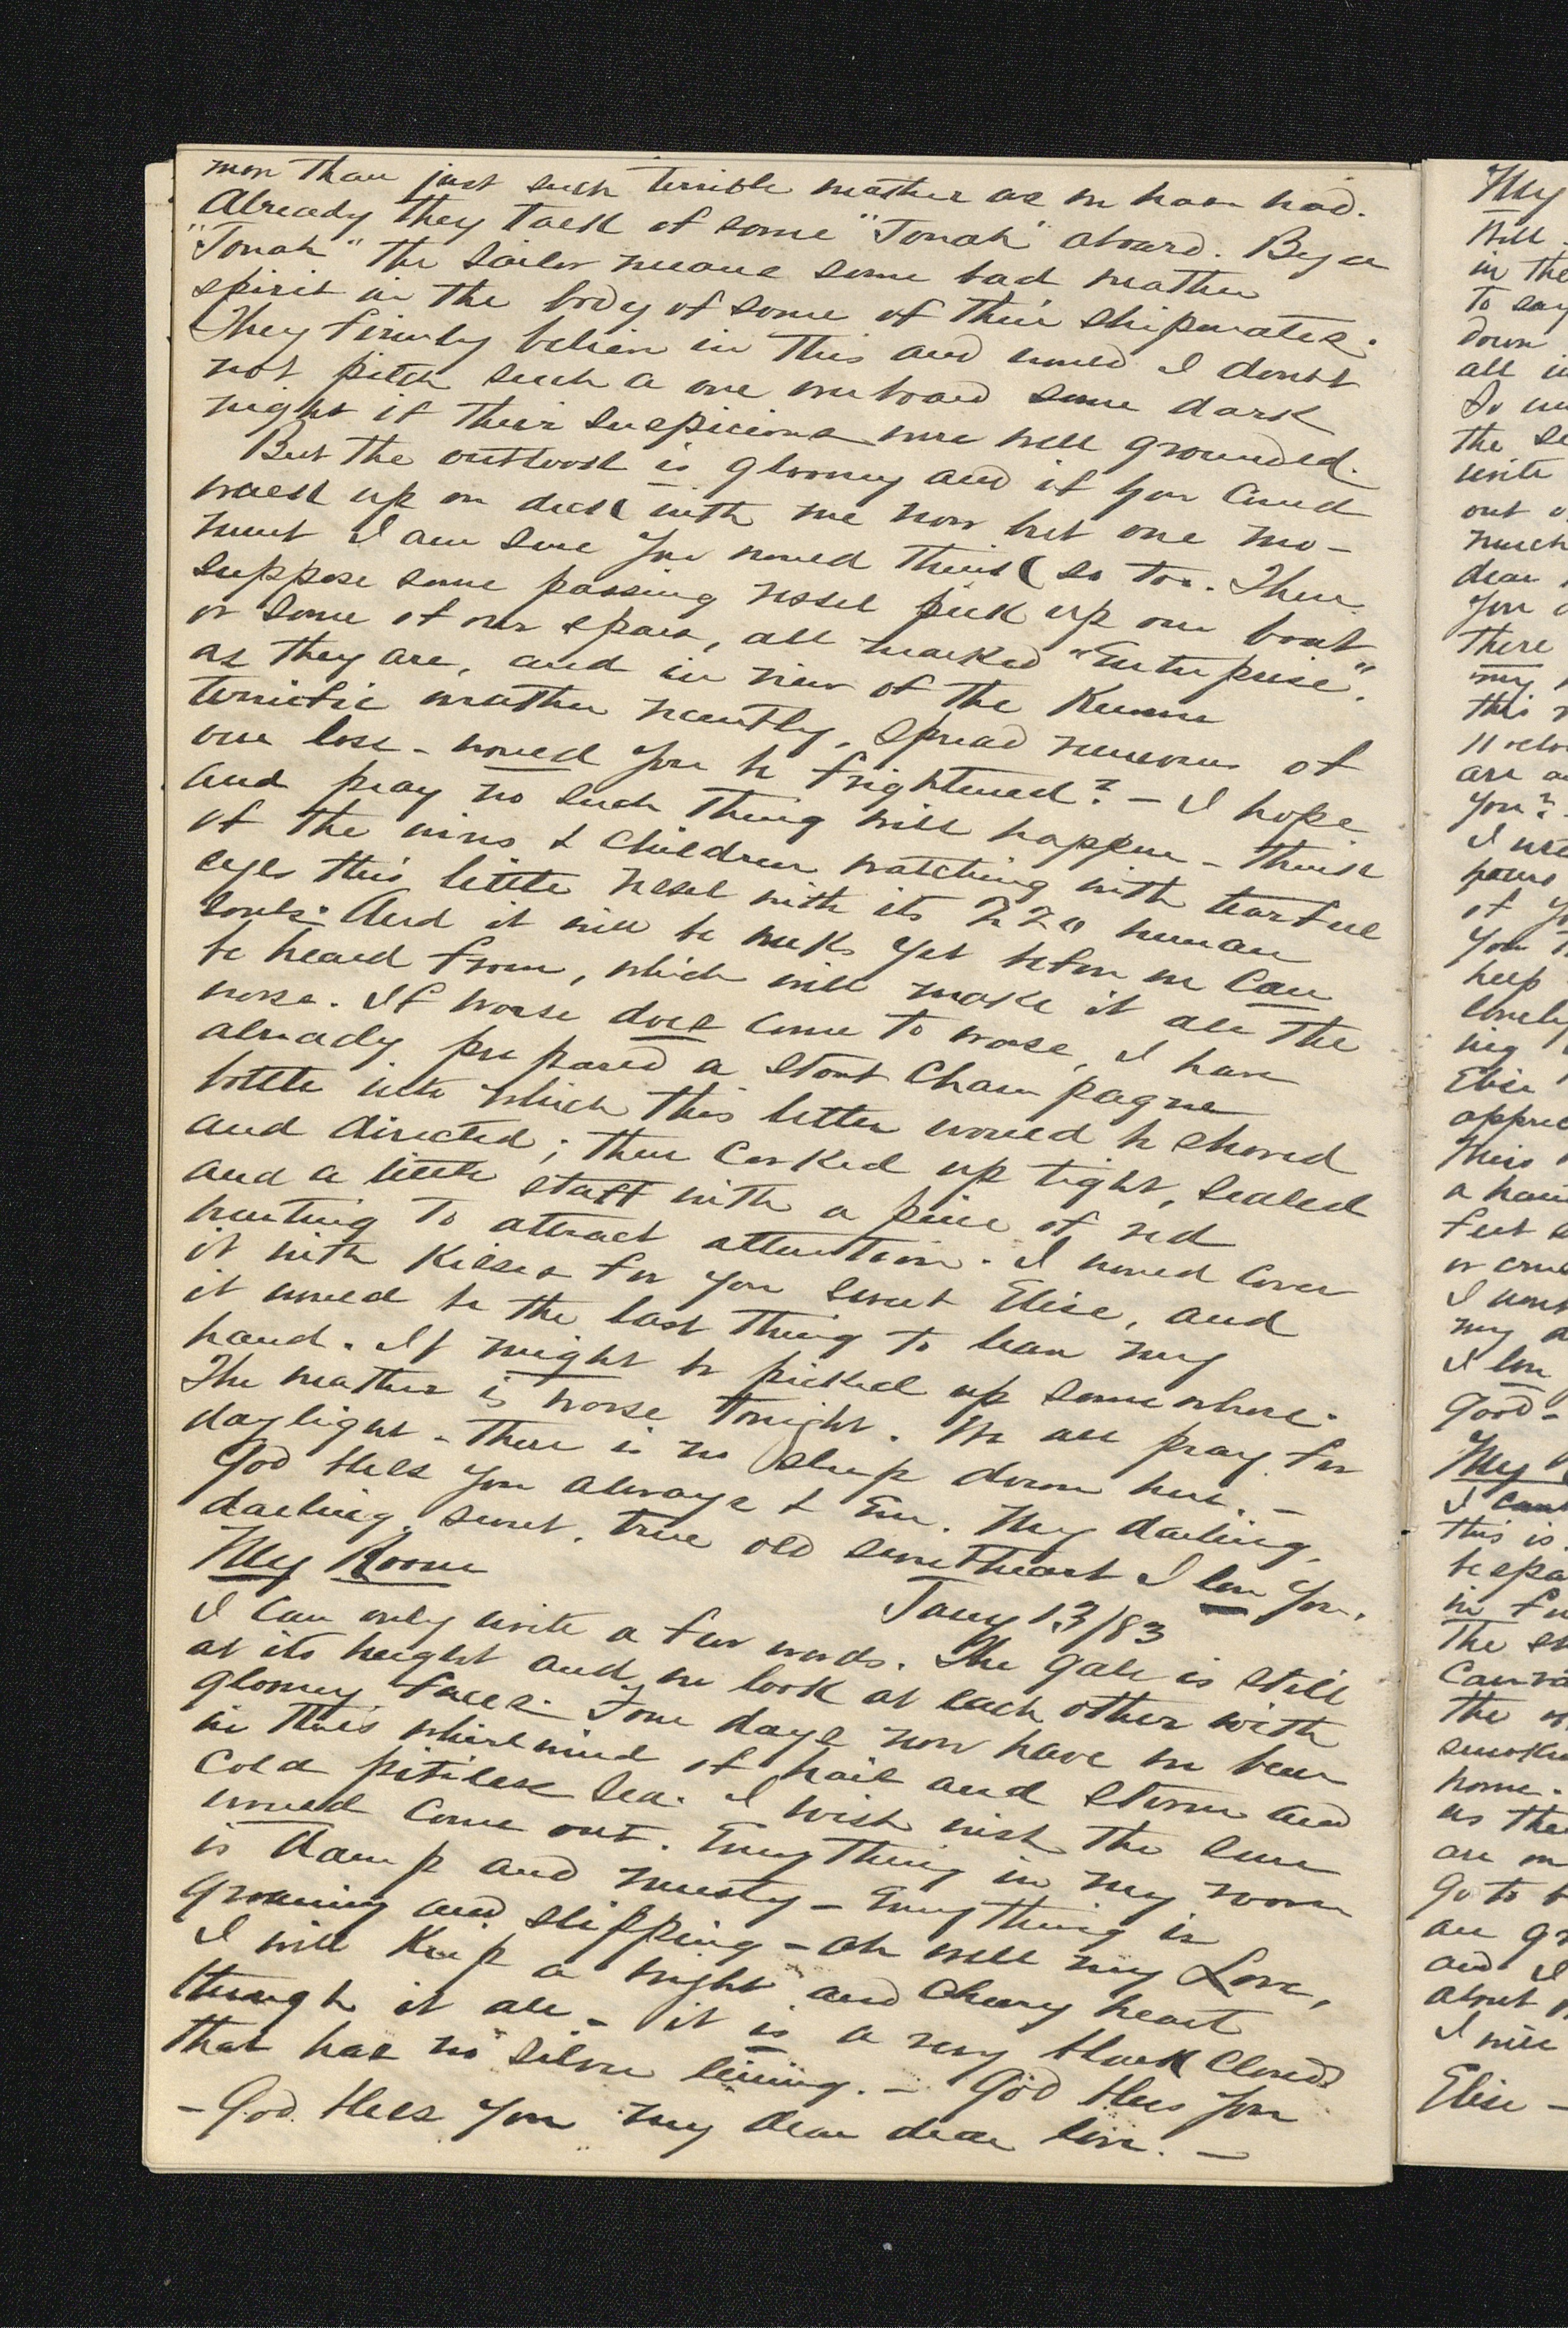 more than just such terrible weather as we have had.
Already they talk of some "Jonah" aboard. By a
"Jonah" the sailor means some bad weather
spirit in the body of some of their shipmates.
They firmly believe in this and would I doubt
not pitch such a one overboard some dark
night if their suspicions were well grounded.
But the outlook is gloomy and if you could
walk up on deck with me now but one mo-
ment I am sure you would think so too. Then
suppose some passing vessel pick up our boat
or some of our spars, all marked "Enterprise".
as they are, and in view of the known
terrific weather recently, spread rumours of
our loss - would you be frightened? - I hope
and pray no such thing will happen - think
of the wives & children watching with tearful
eyes this little vessel with its 220 human
souls. And it will be weeks yet before we can
be heard from, which will make it all the
worse. If worse does come to worse, I have
already prepared a stout Champagne
bottle into which this letter would be shoved
and directed; then corked up tight, sealed
and a little staff with a piece of red
bunting to attract attention. I would cover
it with kisses for you sweet Elise, and
it would be the last thing to leave my
hand. It might be picked up somewhere.
The weather is worse tonight. We all pray for
daylight - there is no sleep down here. -
God bless you always & Em. My darling,
darling, sweet, true old sweetheart I love you.
My Room
Jany 13/83
I can only write a few words. The gale is still
at its height and we look at each other with
gloomy faces. Four days now have we been
in this whirlwind of hail and storm and
cold pitiless sea. I wish wish the sun
would come out. Everything in my room
is damp and musty - Everything is
groaning and slipping - ah well my Love,
I will keep a bright and cheery heart
through it all - it is a very black cloud
that has no silver lining. - God bless you
- God bless you my dear dear love. -
My
Still
in the
to say
down
all
the
write
out
much
dear
you
there
my
this
are
you?
I
of
you
keep
lonely
Elise
this
a
feet
or
I
my
I love
Good-
My
I
this is
be
in
The
the
home.
us
are
go to
and I
about
I will
Elise -